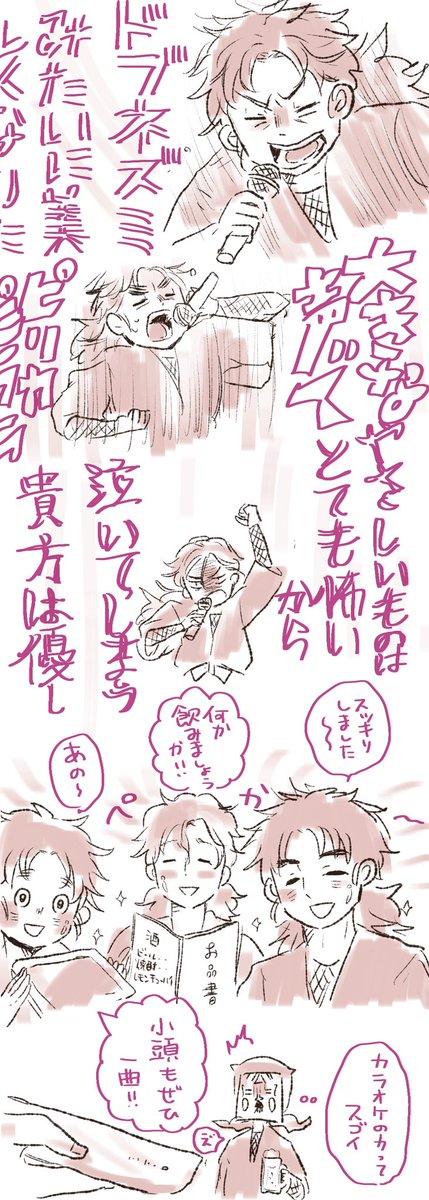 ドブネズミ
みたいに美
しくなりた
大きな
声で
ピリカ
ピリララ
やさしいものは
とても怖い
から
泣いてしまう
貴方は優し
スッキリ
しました
～～
何か
飲みましょう
か!!
あの～
ぺかー
お品書
酒
ビール..
焼酎..
レモンチューハイ
カラオケの力って
スゴイ
小頭もぜひ
一曲!!